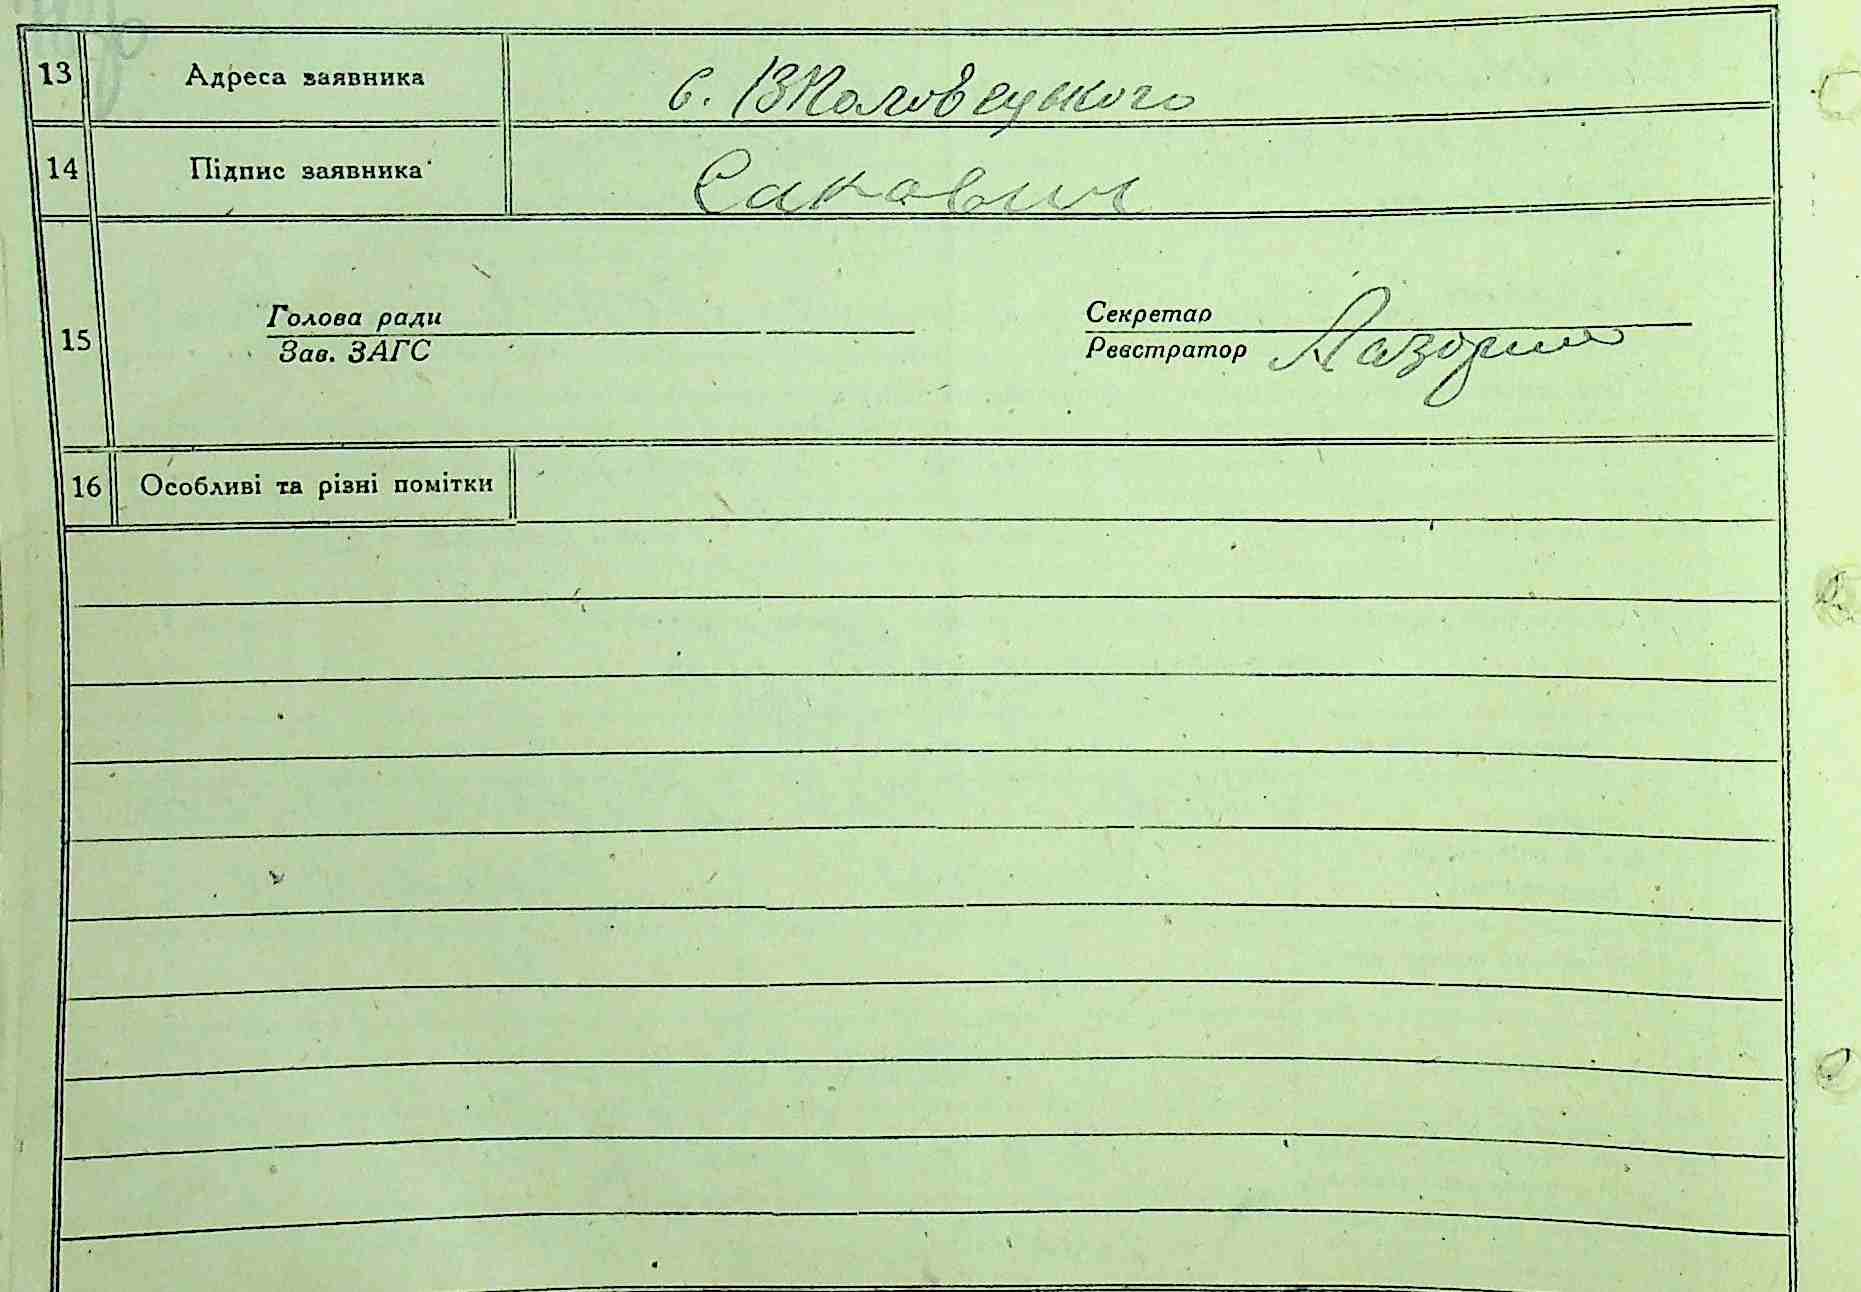 13 Адреса заявника с. ВПоловецького
14 Підпис заявника Сакович
15 Голова ради Секретар
Зав. ЗАГС Реєстратор
16 Особливі та різні помітки